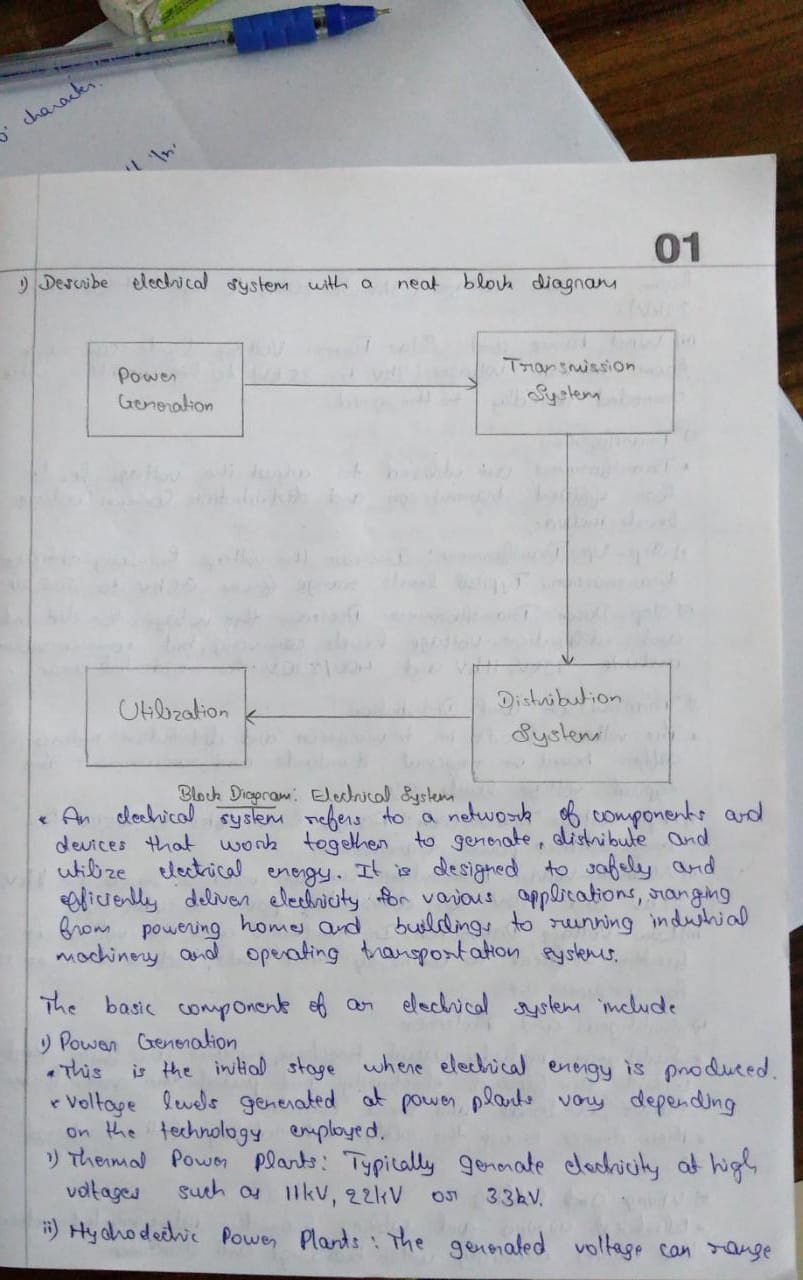 character.
'\n'
01
1) Describe electrical system with a neat block diagram
Power
Generation
Transmission
System
Utilization
Distribution
System
Block Diagram: Electrical System
• An electrical system refers to a network of components and
devices that work together to generate, distribute and
utilize electrical energy. It is designed to safely and
efficiently deliver electricity for various applications, ranging
from powering homes and buildings to running industrial
machinery and operating transportation systems.
The basic components of an electrical system include
1) Power Generation
• This is the initial stage where electrical energy is produced.
• Voltage levels generated at power plants vary depending
on the technology employed.
i) Thermal Power Plants: Typically generate electricity at high
voltages such as 11kV, 22kV or 33kV.
ii) Hydroelectric Power Plants: The generated voltage can range